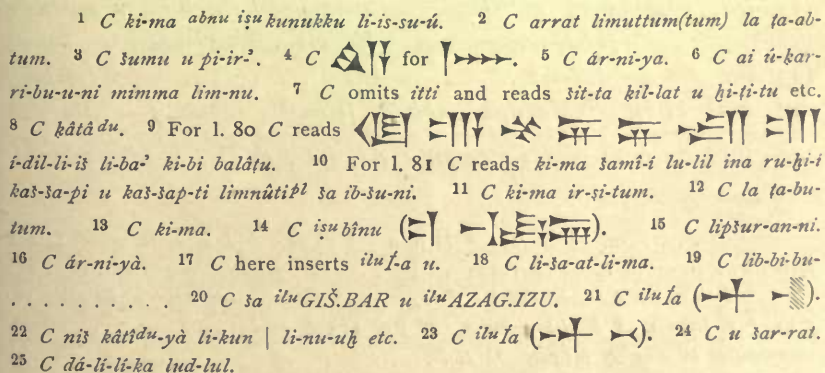 1 C ki-ma abnu iṣu kunukku li-is-su-ú. 2 C arrat limuttum(tum) la ṭa-ab-
tum. 3 C šumu u pi-ir-’. 4 C for 5 C ár-ni-ya. 6 C ai ú-ḳar-
ri-bu-u-ni mimma lim-nu. 7 C omits itti and reads šit-ta ḳil-lat u ḫi-ṭi-tu etc.
8 C ḳâtâ du. 9 For l. 80 C reads
í-dil-li-iš li-ba-’ ki-bi balâṭu. 10 For l. 81 C reads ki-ma šamî-í lu-lil ina ru-ḫi-í
kaš-ša-pi u kaš-šap-ti limnûti pl ša ib-šu-ni. 11 C ki-ma ir-ṣi-tum. 12 C la ṭa-bu-
tum. 13 C ki-ma. 14 C iṣu bînu ( ). 15 C lipšur-an-ni.
16 C ár-ni-yà. 17 C here inserts ilu Í-a u. 18 C li-ša-at-li-ma. 19 C lib-bi-bu-
. . . . . . . . . . 20 C ša ilu GIŠ.BAR u ilu AZAG.IZU. 21 C ilu Ía ( ).
22 C niš ḳâtî du-yà li-kun | li-nu-uḫ etc. 23 C ilu Ía ( ). 24 C u šar-rat.
25 C dá-lí-lí-ka lud-lul.